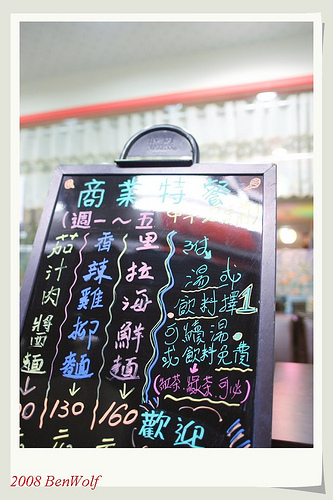 商業特餐
(週一～五
茄汁肉醬麵
香辣雞柳麵
里拉海鮮麵
130
160
附
湯或
飲料擇1
可續湯
或飲料免費
(紅茶.綠茶可)
歡迎
2008 BenWolf